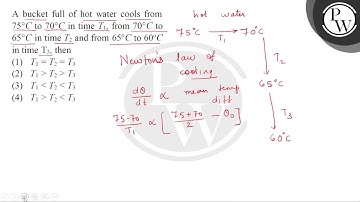 A bucket full of hot water cools from
75°C to 70°C in time T₁, from 70°C to
65°C in time T₂ and from 65°C to 60°C
in time T₃, then
(1) T₁ = T₂ = T₃
(2) T₁ > T₂ > T₃
(3) T₁ < T₂ < T₃
(4) T₁ > T₂ < T₃
hot water
75°C → 70°C
T₁
T₂
65°C
T₃
60°C
Newton's law of
cooling
dθ/dt ∝ mean temp diff
75-70/T₁ ∝ [75+70/2 - θ₀]
PW